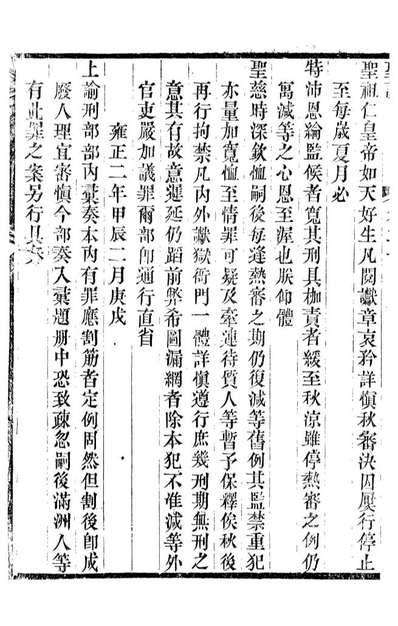 聖祖仁皇帝如天好生凡閱讞章哀矜詳慎秋審決囚屢行停止
至每歲夏月必
特沛恩綸監候者寬其刑具枷責者緩至秋涼雖停熱審之例仍
寓減等之心恩至渥也朕仰體
聖慈時深欽恤嗣後每逢熱審之期仍復減等舊例其監禁重犯
亦量加寬恤至情罪可疑及牽連待質人等暫予保釋俟秋後
再行拘禁凡內外讞獄衙門一體詳慎遵行庶幾刑期無刑之
意其有故意遲延仍蹈前弊希圖漏網者除本犯不准減等外
官吏嚴加議罪爾部卽通行直省
雍正二年甲辰二月庚戌
上諭刑部部內彙奏本內有罪應割筋者定例固然但割後卽成
廢人理宜審慎今部奏入彙題册中恐致疎忽嗣後滿洲人等
有此罪之案另行具奏